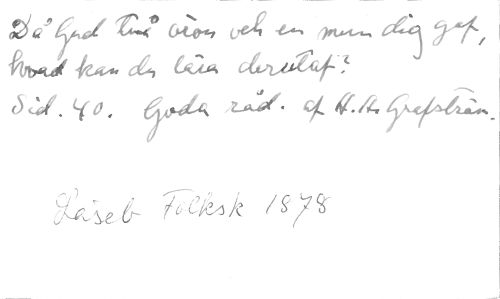 Då Gud två öron och en mun dig gaf,
hvad kan du lära derutaf?
Sid. 40. Goda råd. af A. A. Grafström.
Läseb Folksk 1878